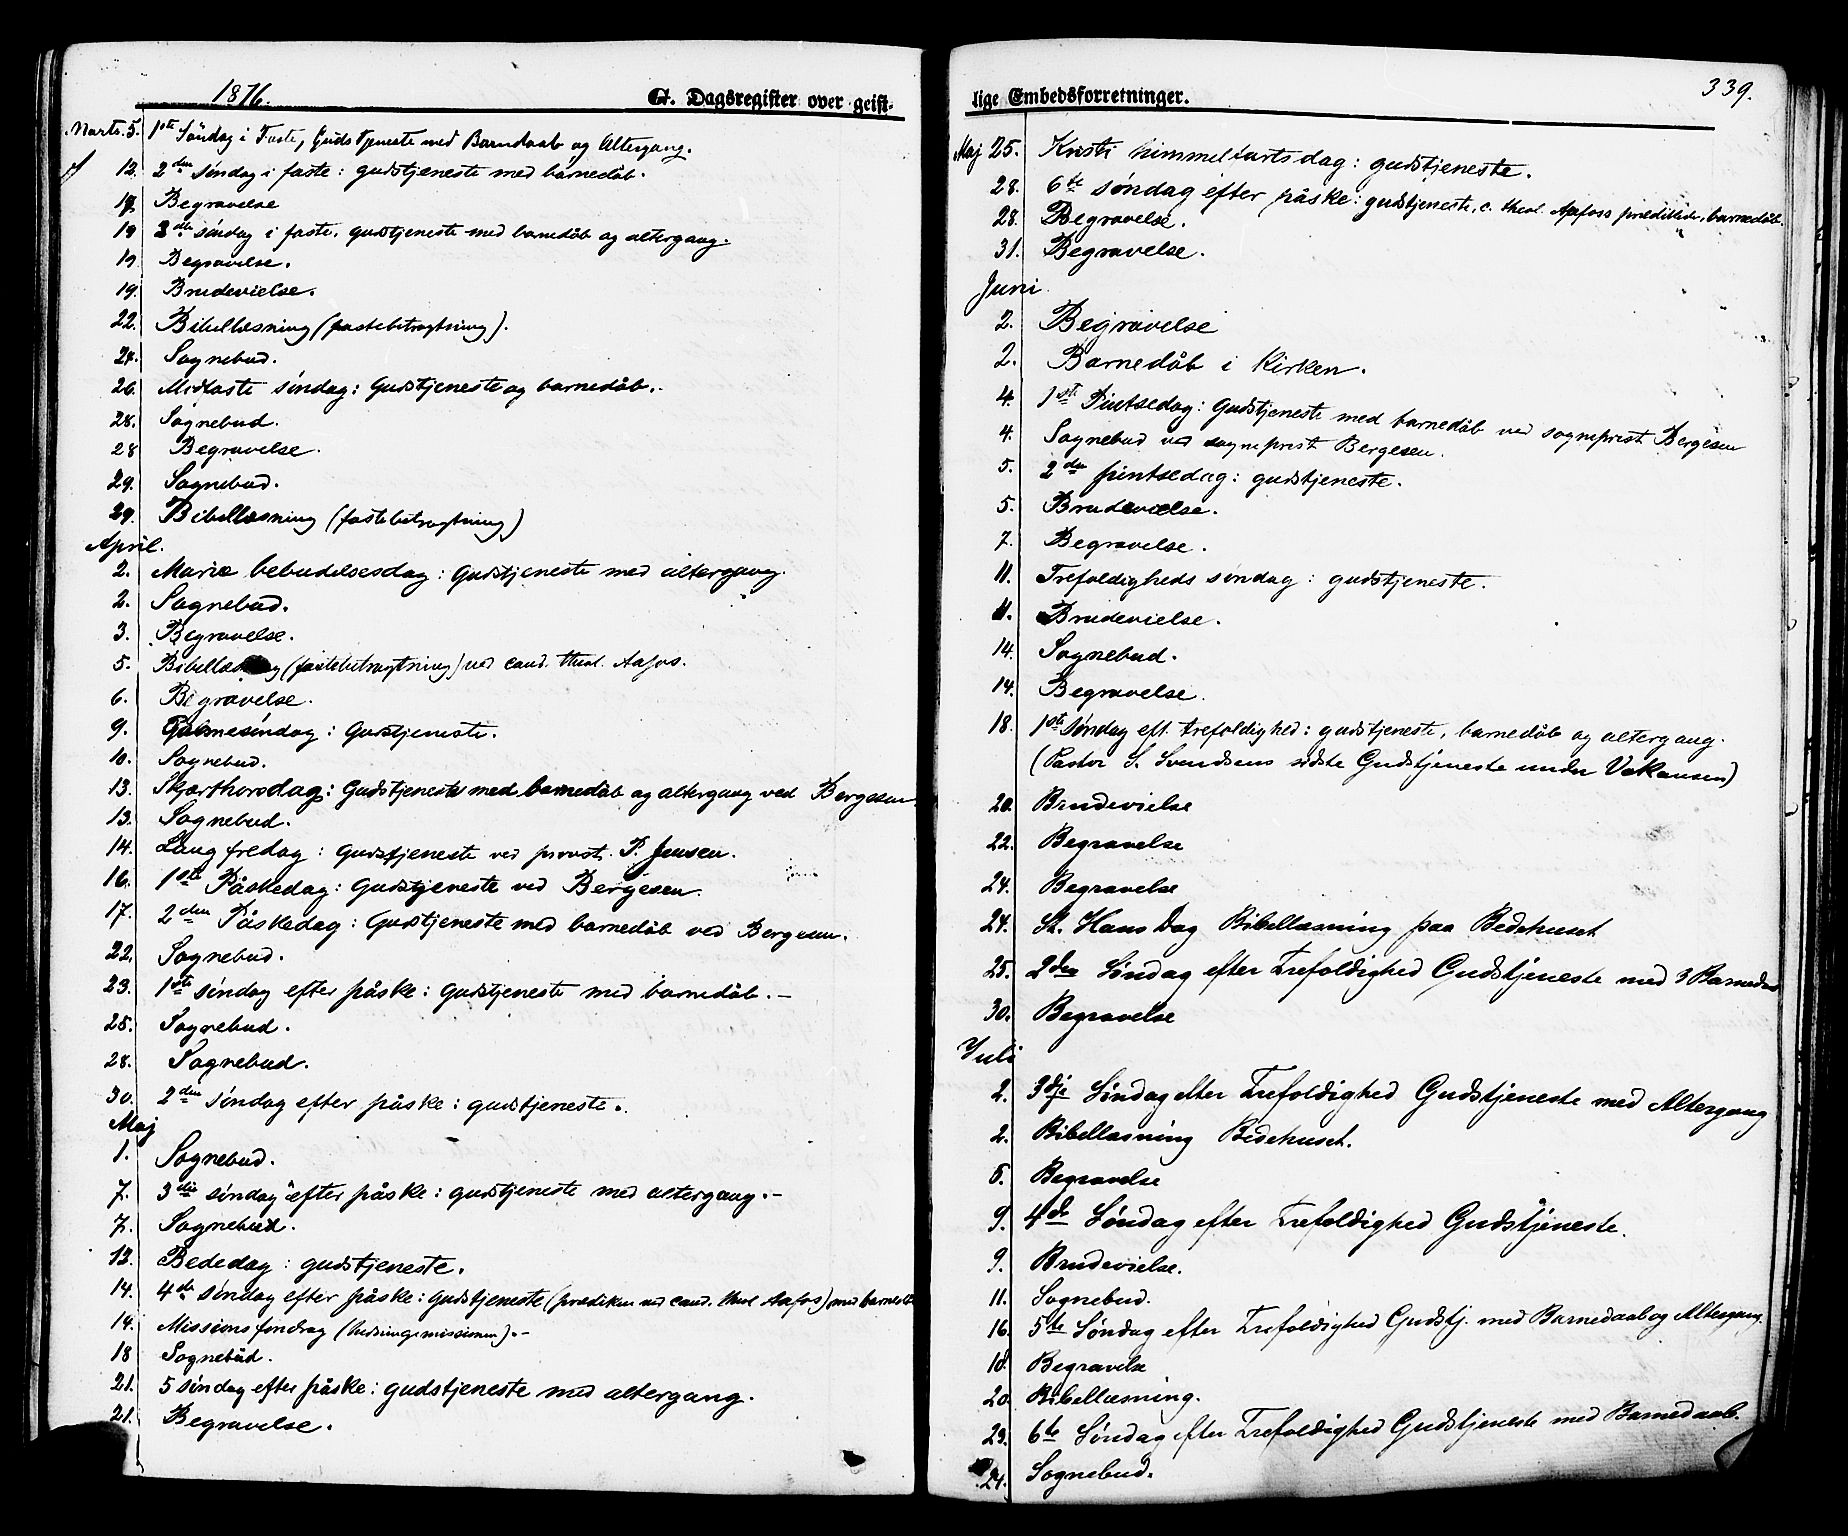 1876.
G. Dagsregister over geist-
Marts. 5. 1ste Søndag i Faste, Gudstjeneste med Barnedaab og Altergang.
12. 2den søndag i faste: gudstjeneste med barnedåb.
17. Begravelse
19 3die søndag i faste, gudstjeneste med barnedåb og altergang.
19 Begravelse.
19. Brudevielse.
22. Bibellæsning (fastebetragtning).
24. Sognebud.
26. Midfaste søndag: Gudstjeneste og barnedåb.
28. Sognebud.
28 Begravelse.
29. Sognebud.
29. Bibellæsning (fastebetragtning)
April.
2. Mariæ bebudelsesdag: Gudstjeneste med altergang.
2. Sognebud.
3. Begravelse.
5. Bibellæsning (fastebetragtning) ved cand. theol. Aafos.
6. Begravelse.
9. Palmesøndag: Gudstjeneste.
10. Sognebud.
13. Skjærthorsdag: Gudstjeneste med barnedåb og altergang ved Bergesen
13. Sognebud.
14. Langfredag: Gudstjeneste ved provst. P. Jensen.
16. 1ste Påskedag: Gudstjeneste ved Bergesen.
17. 2den Påskedag: Gudstjeneste med barnedåb ved Bergesen.
22. Sognebud.
23. 1ste søndag efter påske: Gudstjeneste med barnedåb. -
25. Sognebud.
28. Sognebud.
30. 2den søndag efter påske: gudstjeneste.
Maj
1. Sognebud.
7. 3die søndag efter påske: gudstjeneste med altergang. -
7. Sognebud.
12. Bededag: gudstjeneste.
14. 4de søndag efter påske: Gudstjeneste (prædiken ved cand. theol Aafos) med barnedåb
14. Missionsforedrag (hedningemissionen). -
18 Sognebud.
21. 5 søndag efter påske: gudstjeneste med altergang.
21. Begravelse.
lige Embedsforretninger.
339.
Maj 25. Kristi himmelfartsdag: gudstjeneste.
28. 6te søndag efter påske: gudstjeneste, c. theol. Aafoss prædikede, barnedåb.
28. Begravelse.
31. Begravelse.
Juni
2. Begravelse
2. Barnedåb i Kirken.
4. 1ste Pintsedag: Gudstjeneste med barnedåb ved sogneprest Bergesen
4. Sognebud ved sogneprest Bergesen.
5. 2den pintsedag: gudstjeneste.
5. Brudevielse.
7. Begravelse.
11. Trefoldigheds søndag: gudstjeneste.
11. Brudevielse.
14. Sognebud.
14. Begravelse.
18. 1ste søndag eft. trefoldighed: gudstjeneste, barnedåb og altergang.
(Pastor S. Svendsens sidste Gudstjeneste under Vakansen)
20. Brudevielse
22. Begravelse
24. Begravelse
24. St. Hans Dag Bibellæsning paa Bedehuset
25. 2den Søndag efter Trefoldighed Gudstjeneste med 3 Barnedaab
30. Begravelse
Juli
2. 3dje Søndag efter Trefoldighed Gudstjeneste med Altergang
2. Bibellæsning Bedehuset.
6. Begravelse
9. 4de Søndag efter Trefoldighed Gudstjeneste.
9. Brudevielse.
11. Sognebud.
16. 5te Søndag efter Trefoldighed Gudstj. med Barnedaab og Altergang.
18. Begravelse
20. Bibellæsning.
23. 6te Søndag efter Trefoldighed Gudstjeneste med Barnedaab.
24. Sognebud.